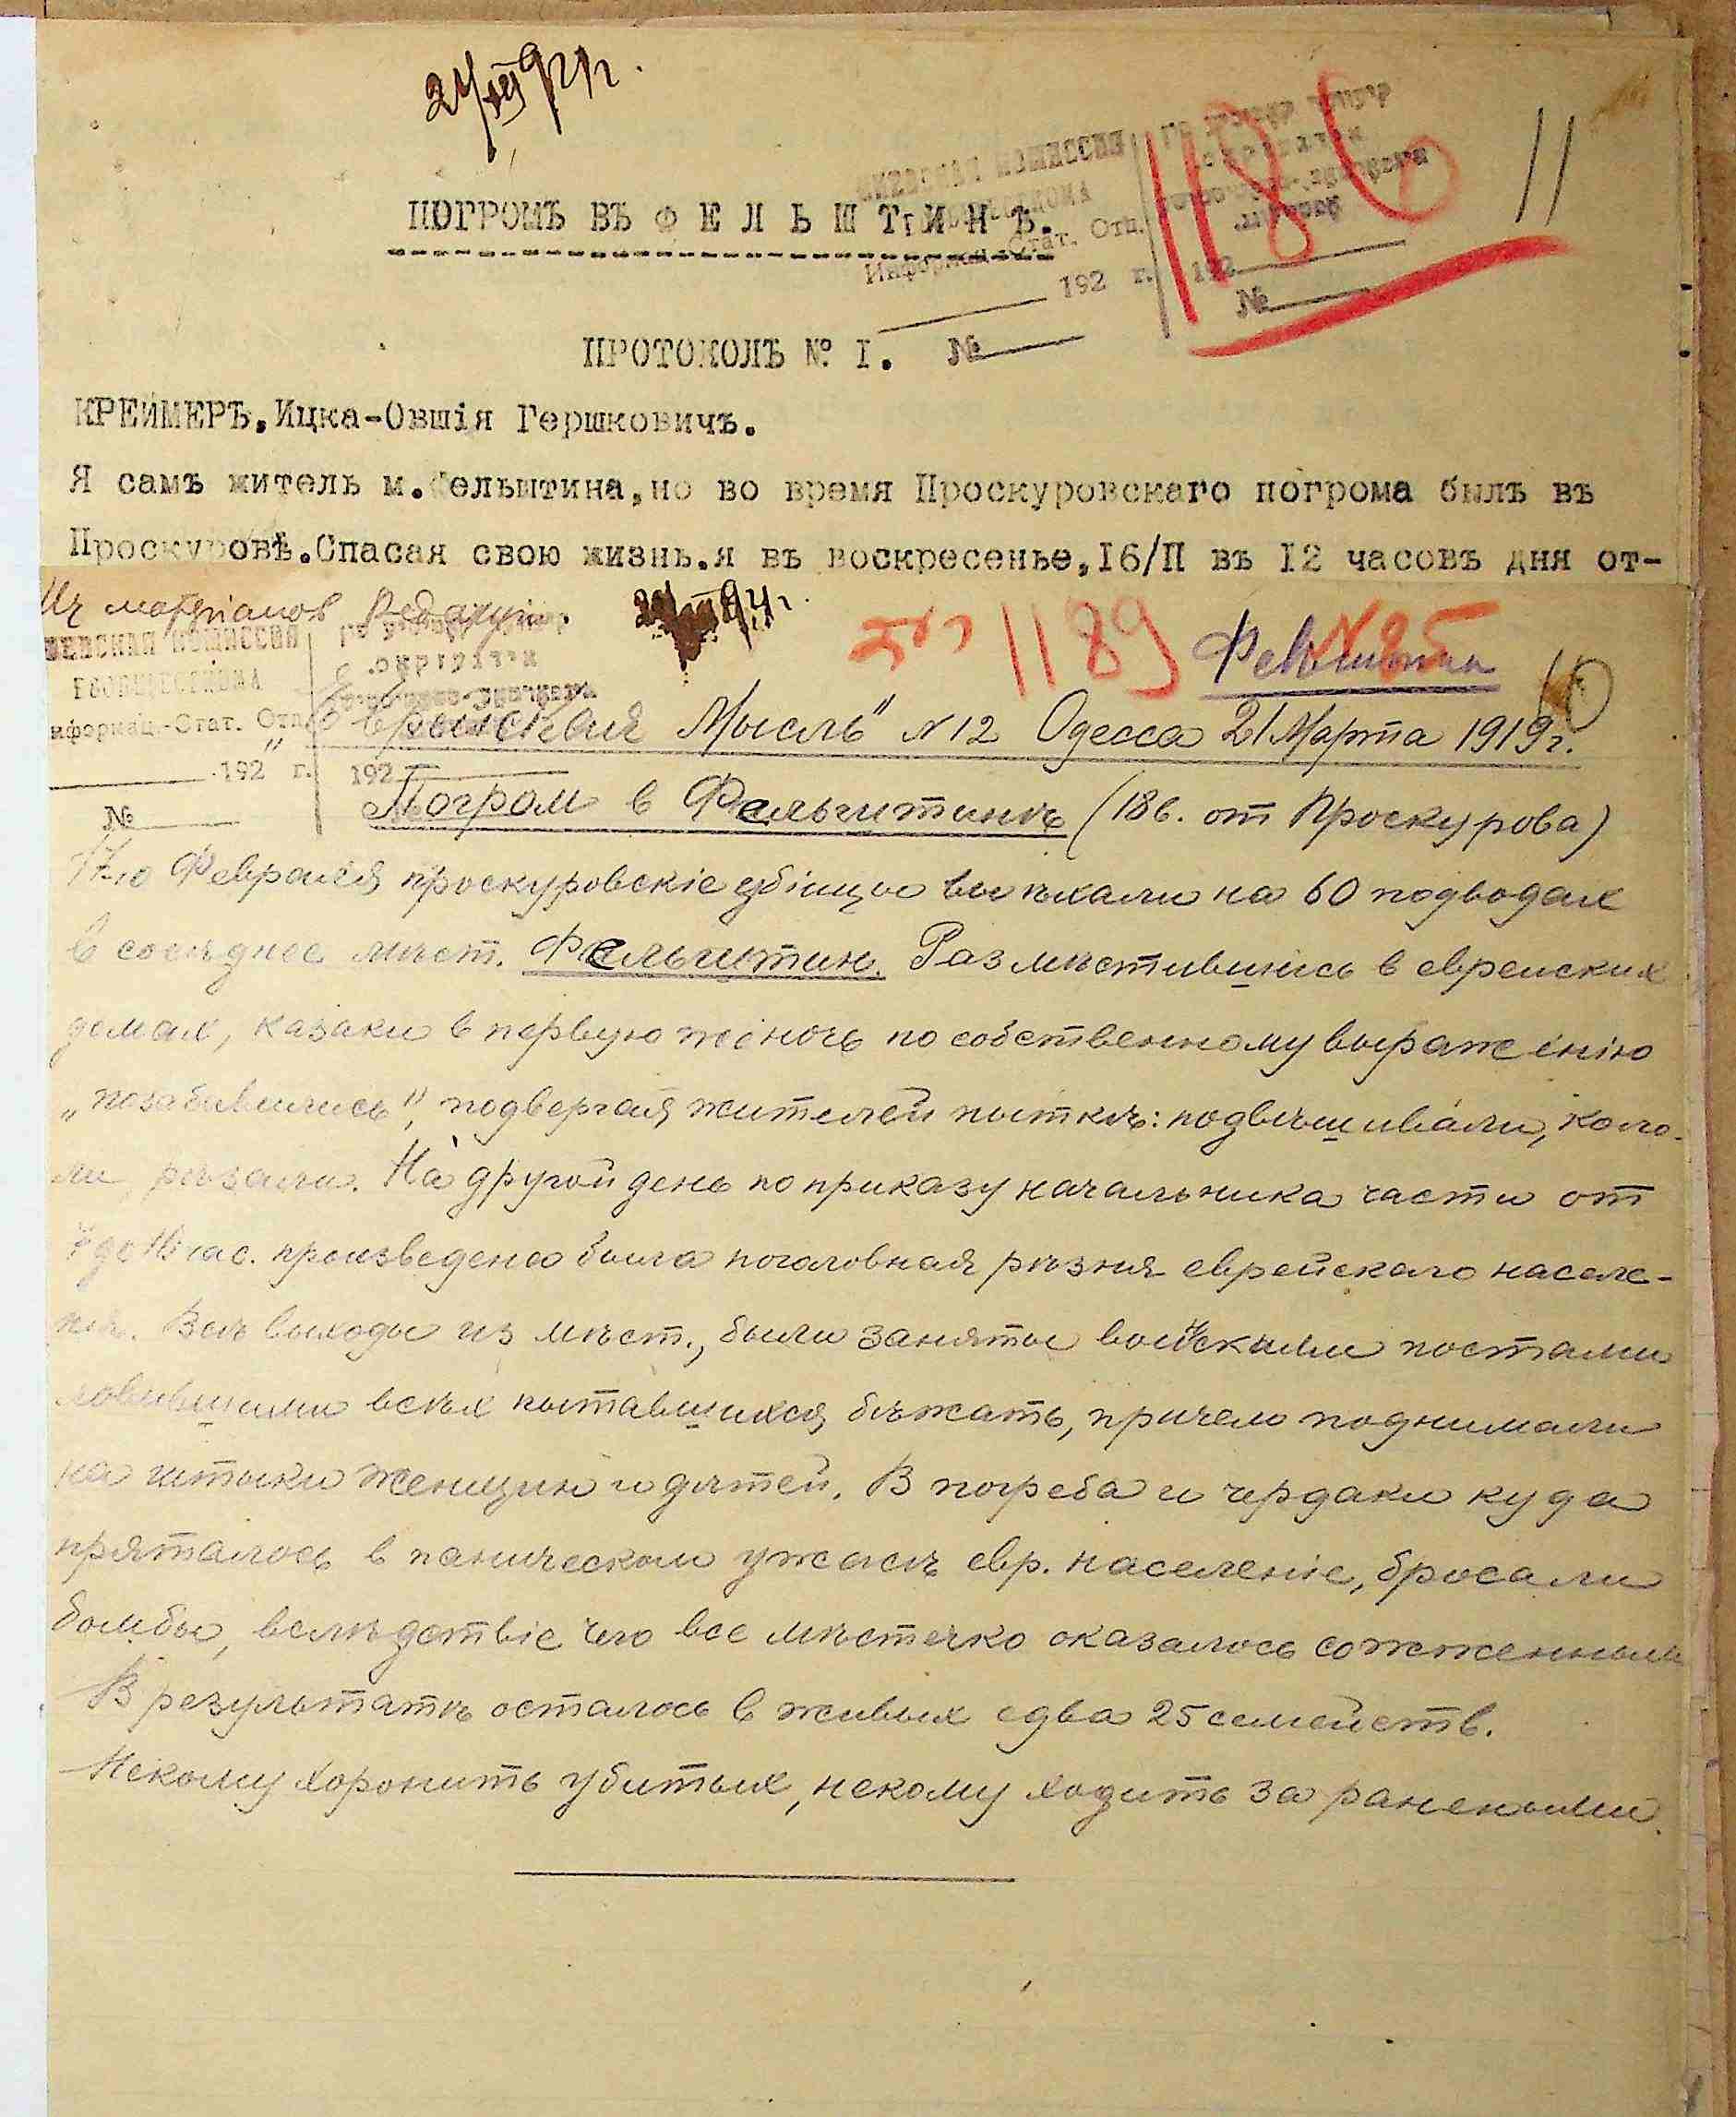 ПОГРОМЪ ВЪ Ф Е Л Ь Ш Т И Н Ѣ.
1186
11
Информац.-Стат. Отд.
192 г.
192
№
№
ПРОТОКОЛЪ № I.
КРЕЙМЕРЪ.Ицка-Овшія Гершковичъ.
Я самъ житель м.Фельштина,но во время Проскуровскаго погрома былъ въ
Проскуровѣ.Спасая свою жизнь.я въ воскресенье,I6/П въ I2 часовъ дня от-
Из матеріалов Редакціи.
1189
N85
Фельштин
10
КІЕВСКАЯ КОМИССІЯ
ЕВОБЩЕСТКОМА
Информац.-Стат. Отд.
192 г.
192
№
"Еврейская Мысль" N 12 Одесса 21 Марта 1919 г.
Погром в Фельштинѣ (18 в. от Проскурова)
17-го Февраля проскуровскіе убійцы выѣхали на 60 подводах
в сосѣднее мѣст. Фельштин. Размѣстившись в еврейских
домах, казаки в первую же ночь по собственному выраженію
„позабавились", подвергая жителей пыткѣ: подвѣшивали, коло-
ли, рѣзали. На другой день по приказу начальника части от
7 до 11 час. произведена была поголовная рѣзня еврейскаго населе-
нія. Всѣ выходы из мѣст., были заняты войсками постами
ловившими всѣх пытавшихся бѣжать, причем поднимали
на штыки женщин и дѣтей. В погреба и чердаки куда
пряталось в паническом ужасѣ евр. населеніе, бросали
бомбы, вслѣдствіе чего все мѣстечко оказалось сожженным
В результатѣ осталось в живых едва 25 семейств.
Некому хоронить убитых, некому ходить за ранеными.